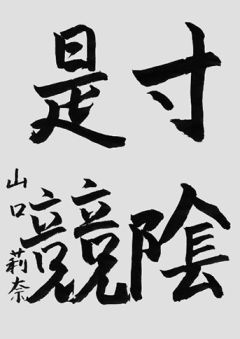 寸陰
是競
山口莉奈